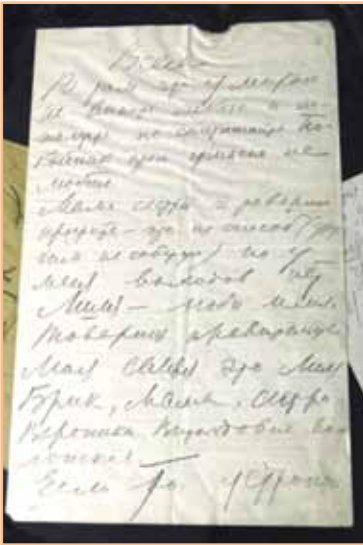 Всем
В том что умираю
не вините никого и по-
жалуйста не сплетничайте По-
койник этого ужасно не
любил
Мама сестры и товарищи
простите – это не способ (дру-
гим не советую) но у
меня выходов нет
Лиля – люби меня.
Товарищ правительство
Моя семья это Лиля
Брик, мама, сестры
Вероника Витольдовна По-
лонская
Если ты устроишь